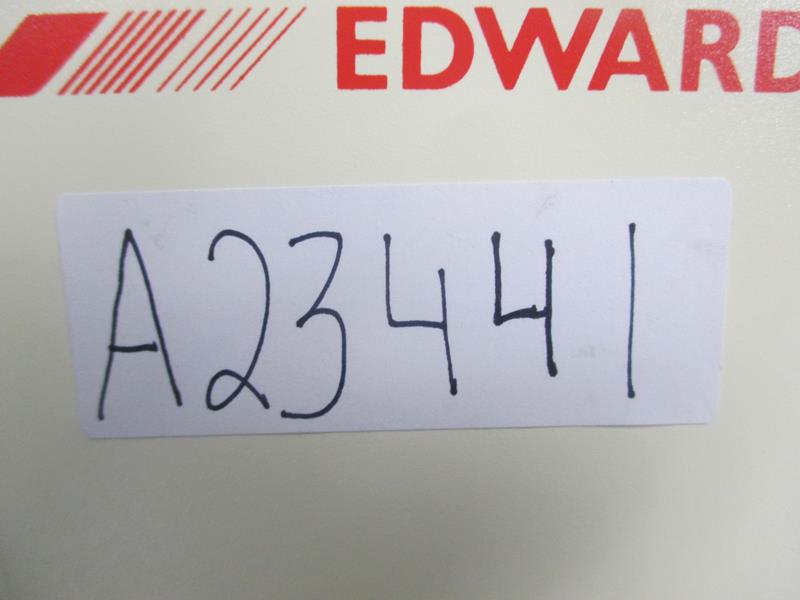 EDWARD
A23441